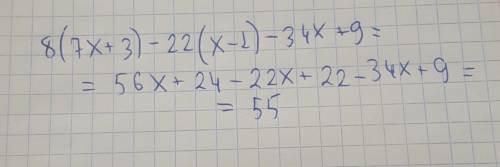 8(7x+3)-22(x-1)-34x+9=
= 56x+24-22x+22-34x+9=
= 55